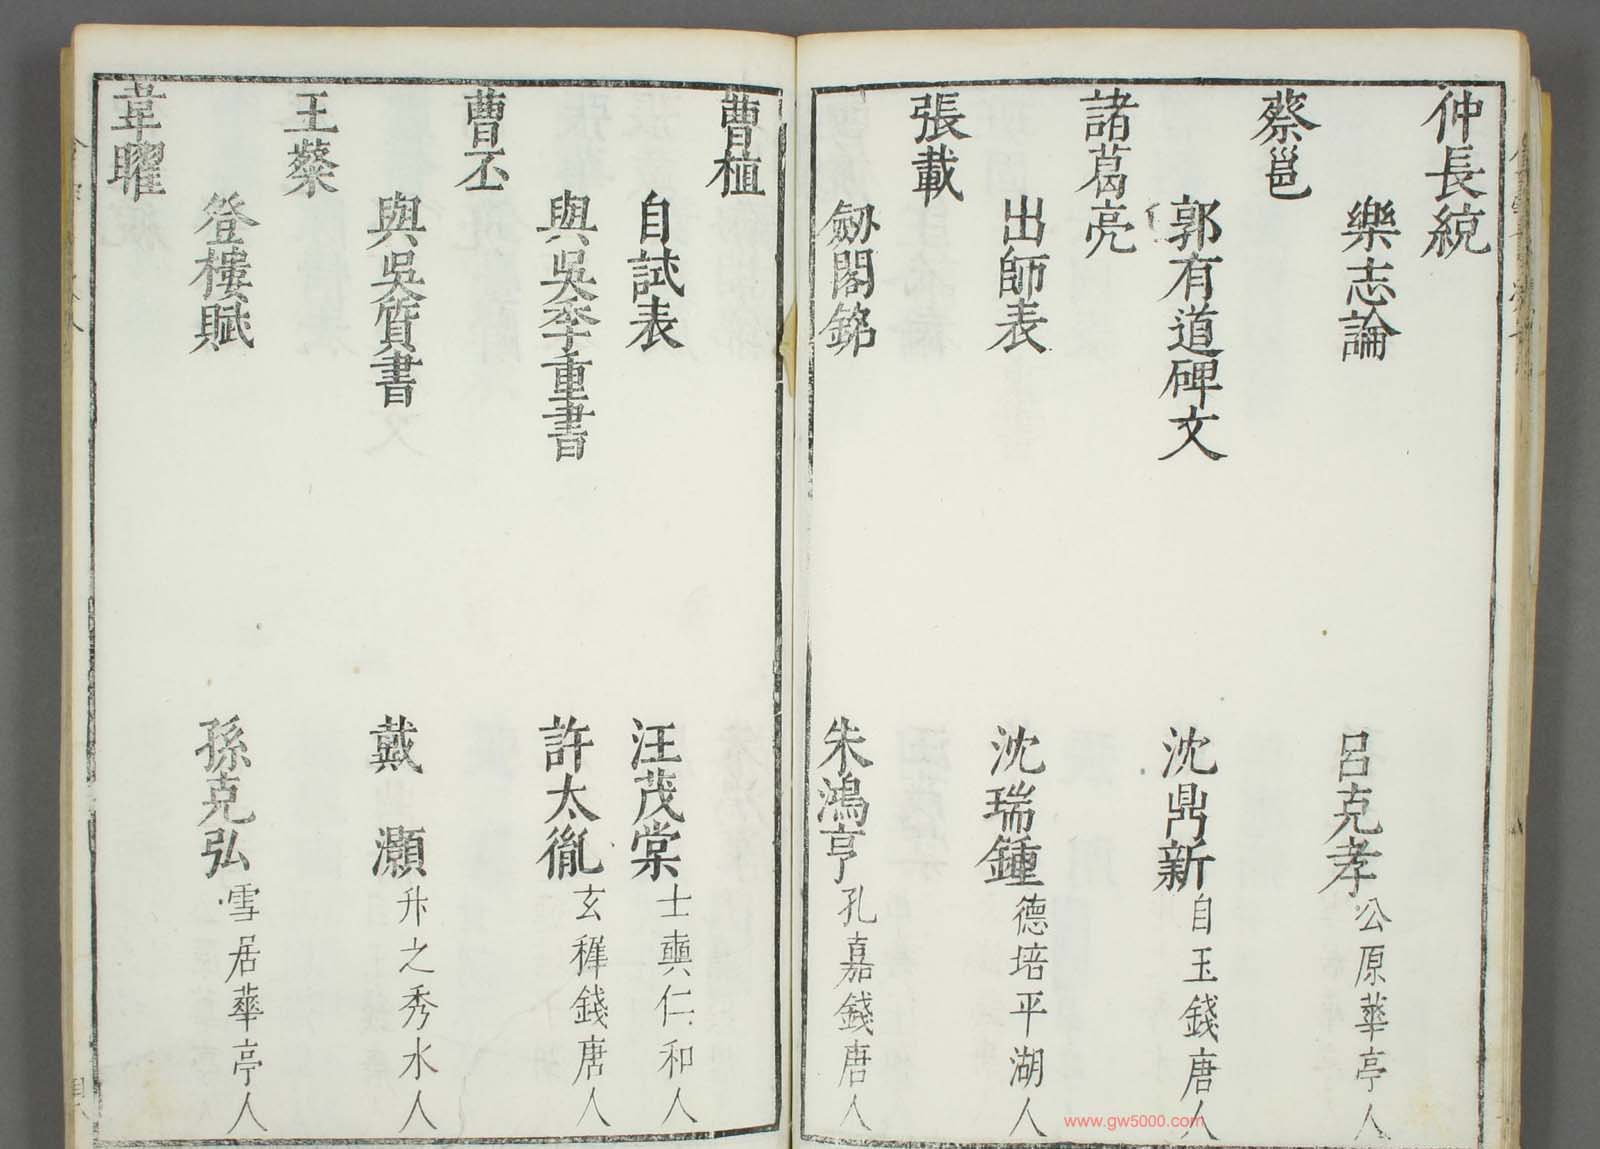 仲長統
樂志論 呂克孝 公原華亭人
蔡邕
郭有道碑文 沈鼎新 自玉錢唐人
諸葛亮
出師表 沈瑞鍾 德培平湖人
張載
劔閣銘 朱鴻亨 孔嘉錢唐人
曹植
自試表 汪茂棠 士輿仁和人
與吳季重書 許太胤 玄穉錢唐人
曹丕
與吳質書 戴灝 升之秀水人
王粲
登樓賦 孫克弘 雪居華亭人
韋曜
www.gw5000.com